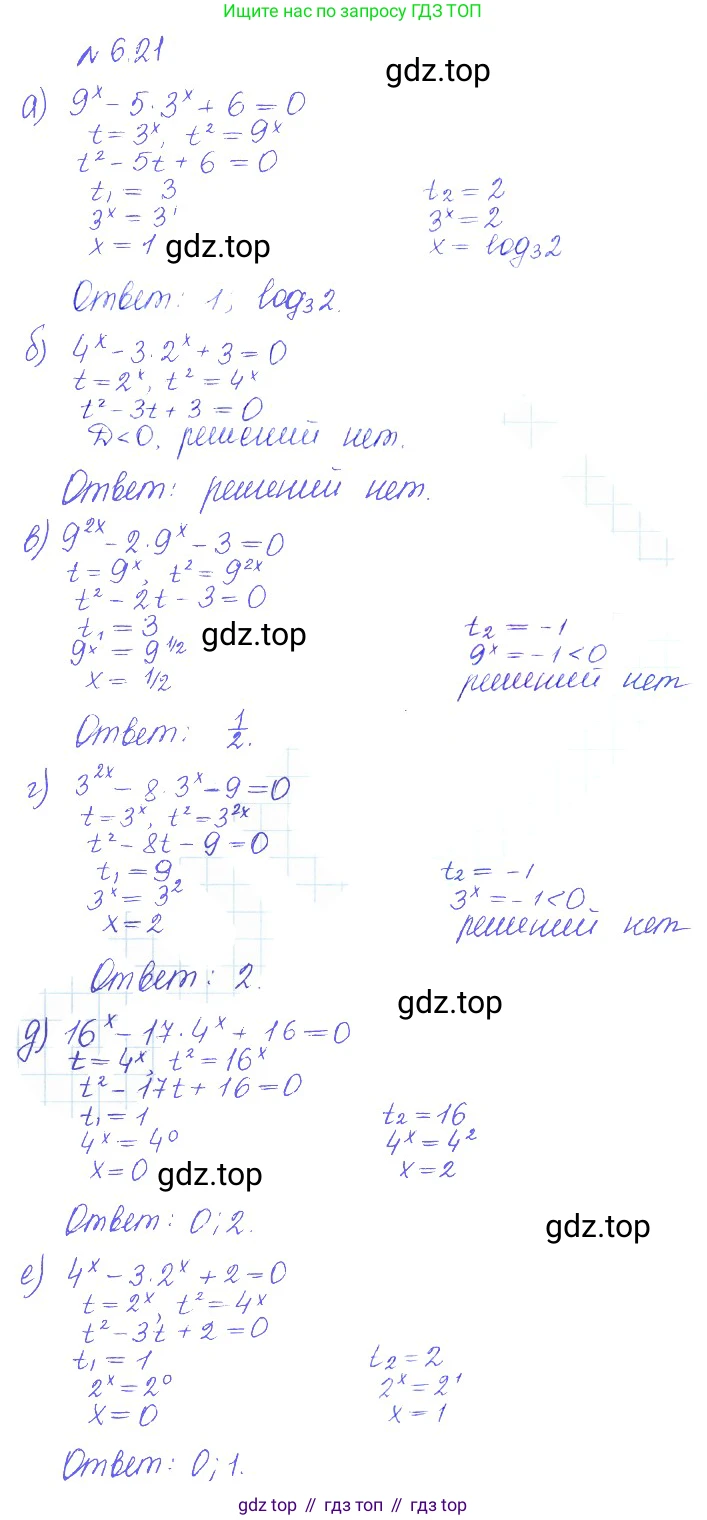 Ищите нас по запросу ГДЗ ТОП
№ 6.21
gdz.top
а) 9^x - 5·3^x + 6 = 0
t = 3^x, t² = 9^x
t² - 5t + 6 = 0
t₁ = 3 t₂ = 2
3^x = 3¹ 3^x = 2
x = 1 gdz.top x = log₃2
Ответ: 1; log₃2.
б) 4^x - 3·2^x + 3 = 0
t = 2^x, t² = 4^x
t² - 3t + 3 = 0
D < 0, решений нет.
Ответ: решений нет.
в) 9^2x - 2·9^x - 3 = 0
t = 9^x, t² = 9^2x
t² - 2t - 3 = 0
t₁ = 3 gdz.top t₂ = -1
9^x = 9^1/2 9^x = -1 < 0
x = 1/2 решений нет
Ответ: 1/2.
г) 3^2x - 8·3^x - 9 = 0
t = 3^x, t² = 3^2x
t² - 8t - 9 = 0
t₁ = 9 t₂ = -1
3^x = 3² 3^x = -1 < 0
x = 2 решений нет
Ответ: 2.
gdz.top
д) 16^x - 17·4^x + 16 = 0
t = 4^x, t² = 16^x
t² - 17t + 16 = 0
t₁ = 1 t₂ = 16
4^x = 4⁰ 4^x = 4²
x = 0 gdz.top x = 2
Ответ: 0; 2.
gdz.top
е) 4^x - 3·2^x + 2 = 0
t = 2^x, t² = 4^x
t² - 3t + 2 = 0
t₁ = 1 t₂ = 2
2^x = 2⁰ 2^x = 2¹
x = 0 x = 1
Ответ: 0; 1.
gdz top // гдз топ // gdz top